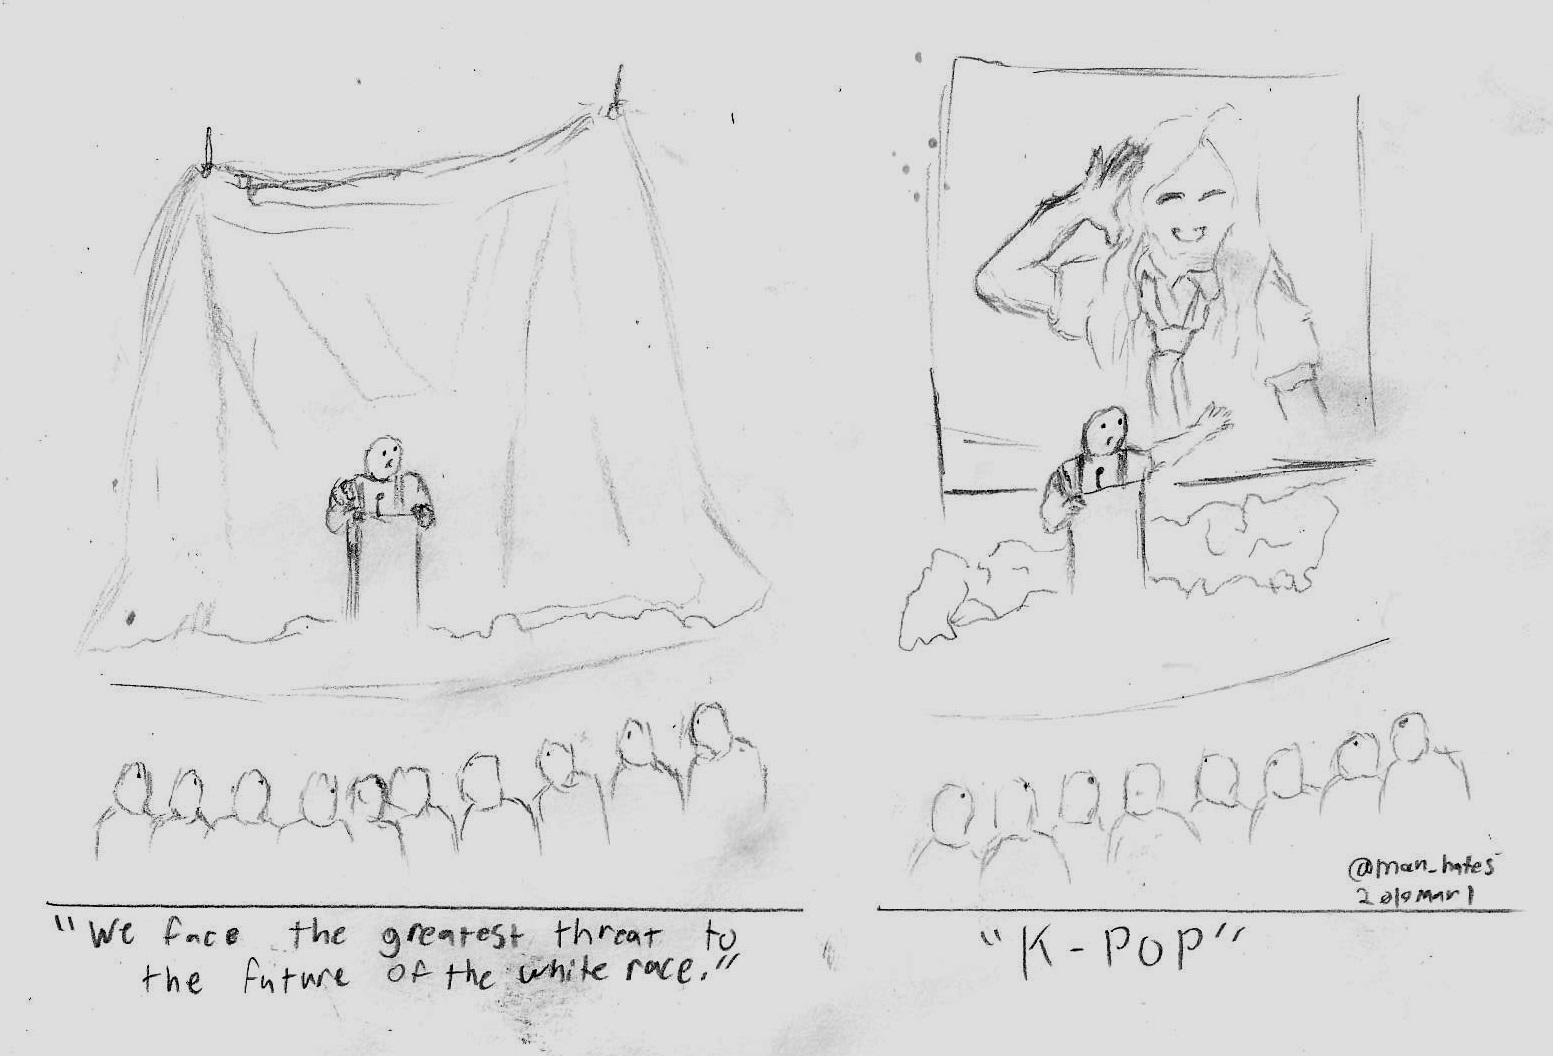 "We face the greatest threat to
the future of the white race."
"K-POP"
@man_hates
2019Mar1